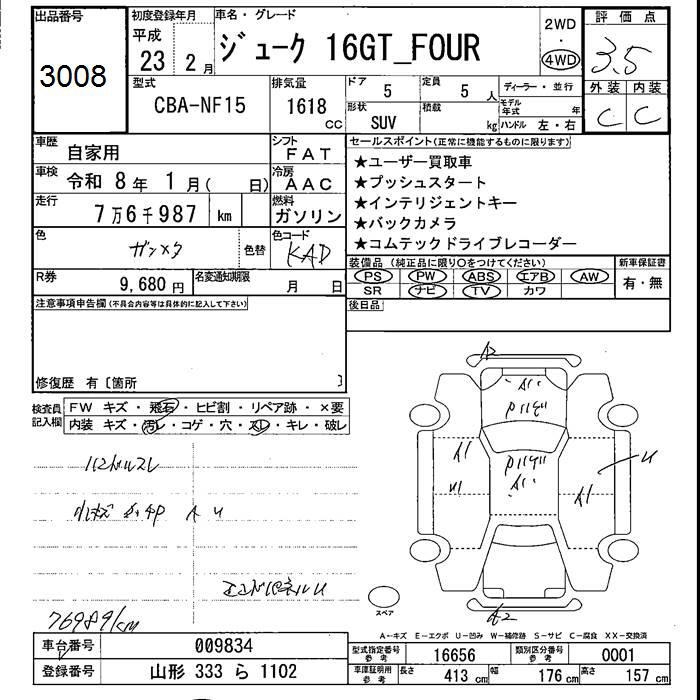 出品番号 初度登録年月 車名・グレード 評価点
3008 平成 23 2月 ジューク 16GT_FOUR 2WD・4WD 3.5
型式 排気量 ドア 定員 ディーラー・並行 外装 内装
CBA-NF15 1618 cc 5 5人 モデル年式 年 C C
形状 SUV 積載 kg ハンドル 左・右
車歴 自家用 シフト FAT セールスポイント(正常に機能するものに限ります)
車検 令和 8年 1月( 日) 冷房 AAC ★ユーザー買取車
★プッシュスタート
走行 7万6千987 km 燃料 ガソリン ★インテリジェントキー
★バックカメラ
色 ガンメタ 色替 色コード KAD ★コムテックドライブレコーダー
R券 9,680円 名変通知期限 月 日 装備品 (純正品に限り○をつけてください) 新車保証書
PS PW ABS エアB AW 有・無
SR ナビ TV カワ
注意事項申告欄(不具合内容等は具体的に記入して下さい) 後日品
修復歴 有〔箇所 〕
検査員記入欄 FW キズ・飛石・ヒビ割・リペア跡・×要
内装 キズ・汚レ・コゲ・穴・スレ・キレ・破レ
A2
A1
A1 U
U1 A1
A U
エンドパネルU
76989km
スペア
A2
A-キズ E-エクボ U-凹み W-補修跡 S-サビ C-腐食 XX-交換済
車台番号 009834 型式指定番号 参考 16656 類別区分番号 参考 0001
登録番号 山形 333 ら 1102 車庫証明用 参考 長さ 413 cm 幅 176 cm 高さ 157 cm